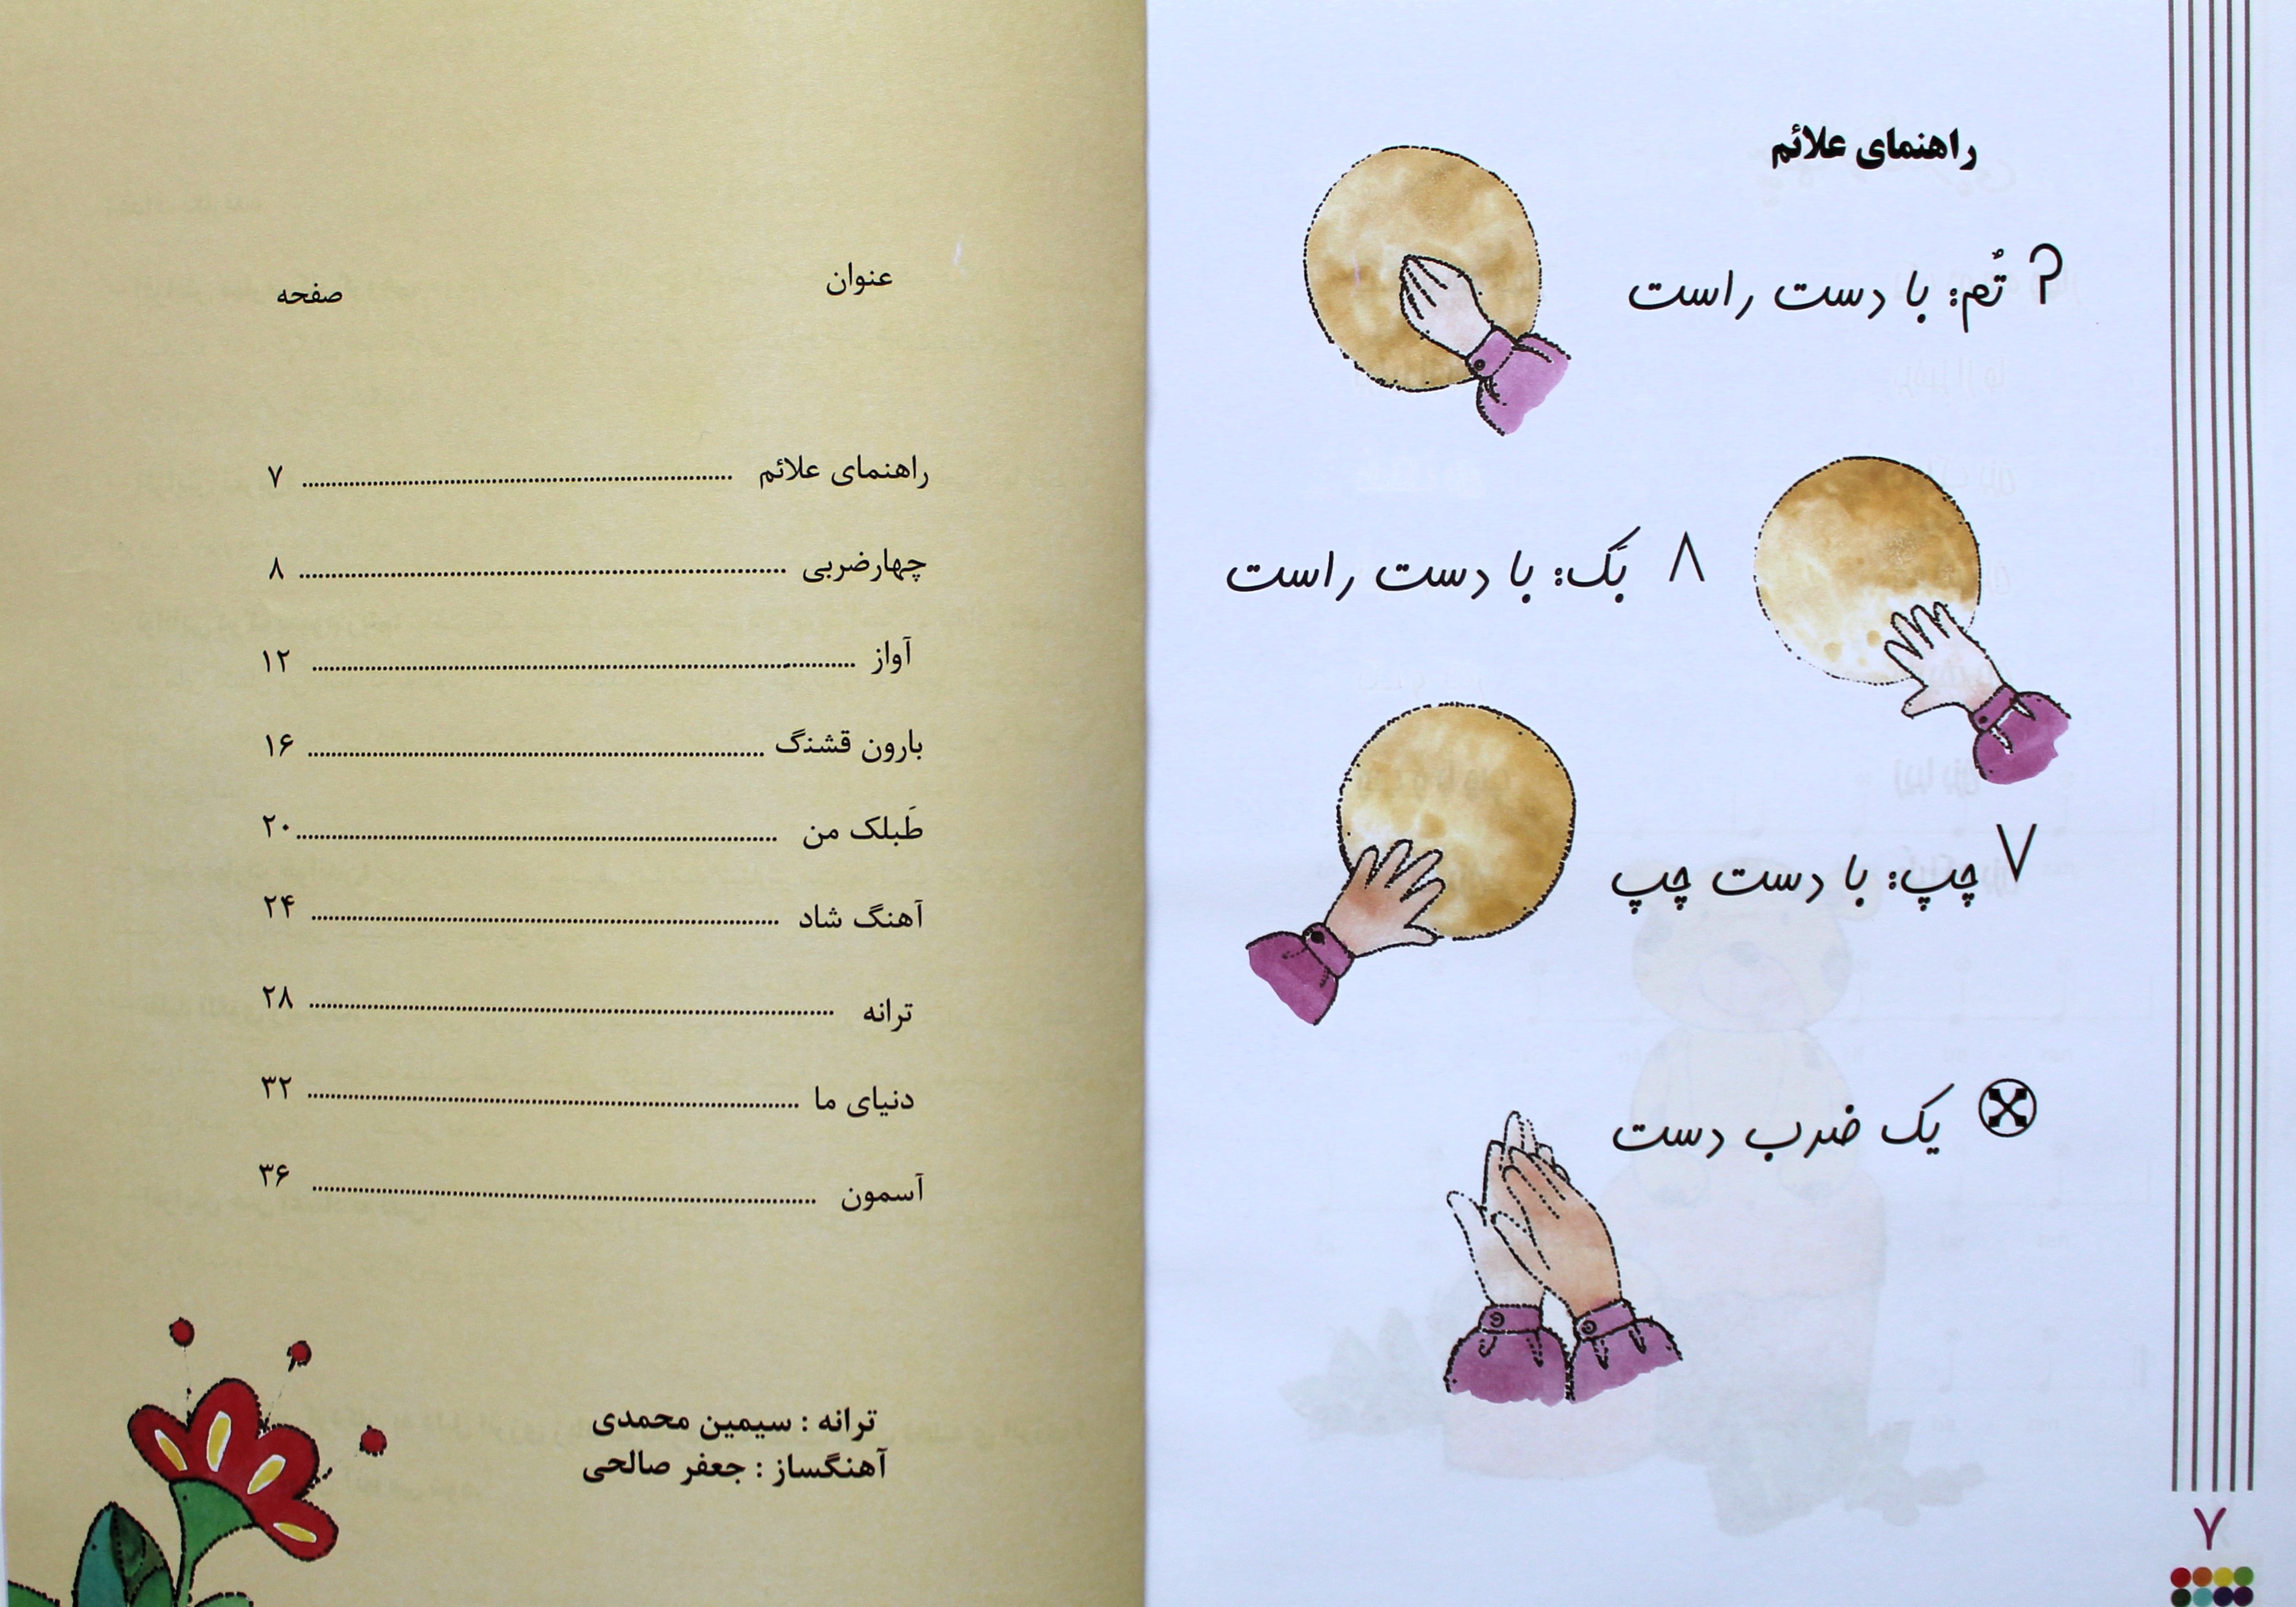 عنوان صفحه
راهنمای علائم ........ ۷
چهارضربی ........ ۸
آواز ........ ۱۲
بارون قشنگ ........ ۱۶
طَبلک من ........ ۲۰
آهنگ شاد ........ ۲۴
ترانه ........ ۲۸
دنیای ما ........ ۳۲
آسمون ........ ۳۶
ترانه : سیمین محمدی
آهنگساز : جعفر صالحی
راهنمای علائم
تُم: با دست راست
۸ بَک: با دست راست
۷ چپ: با دست چپ
یک ضرب دست
۷